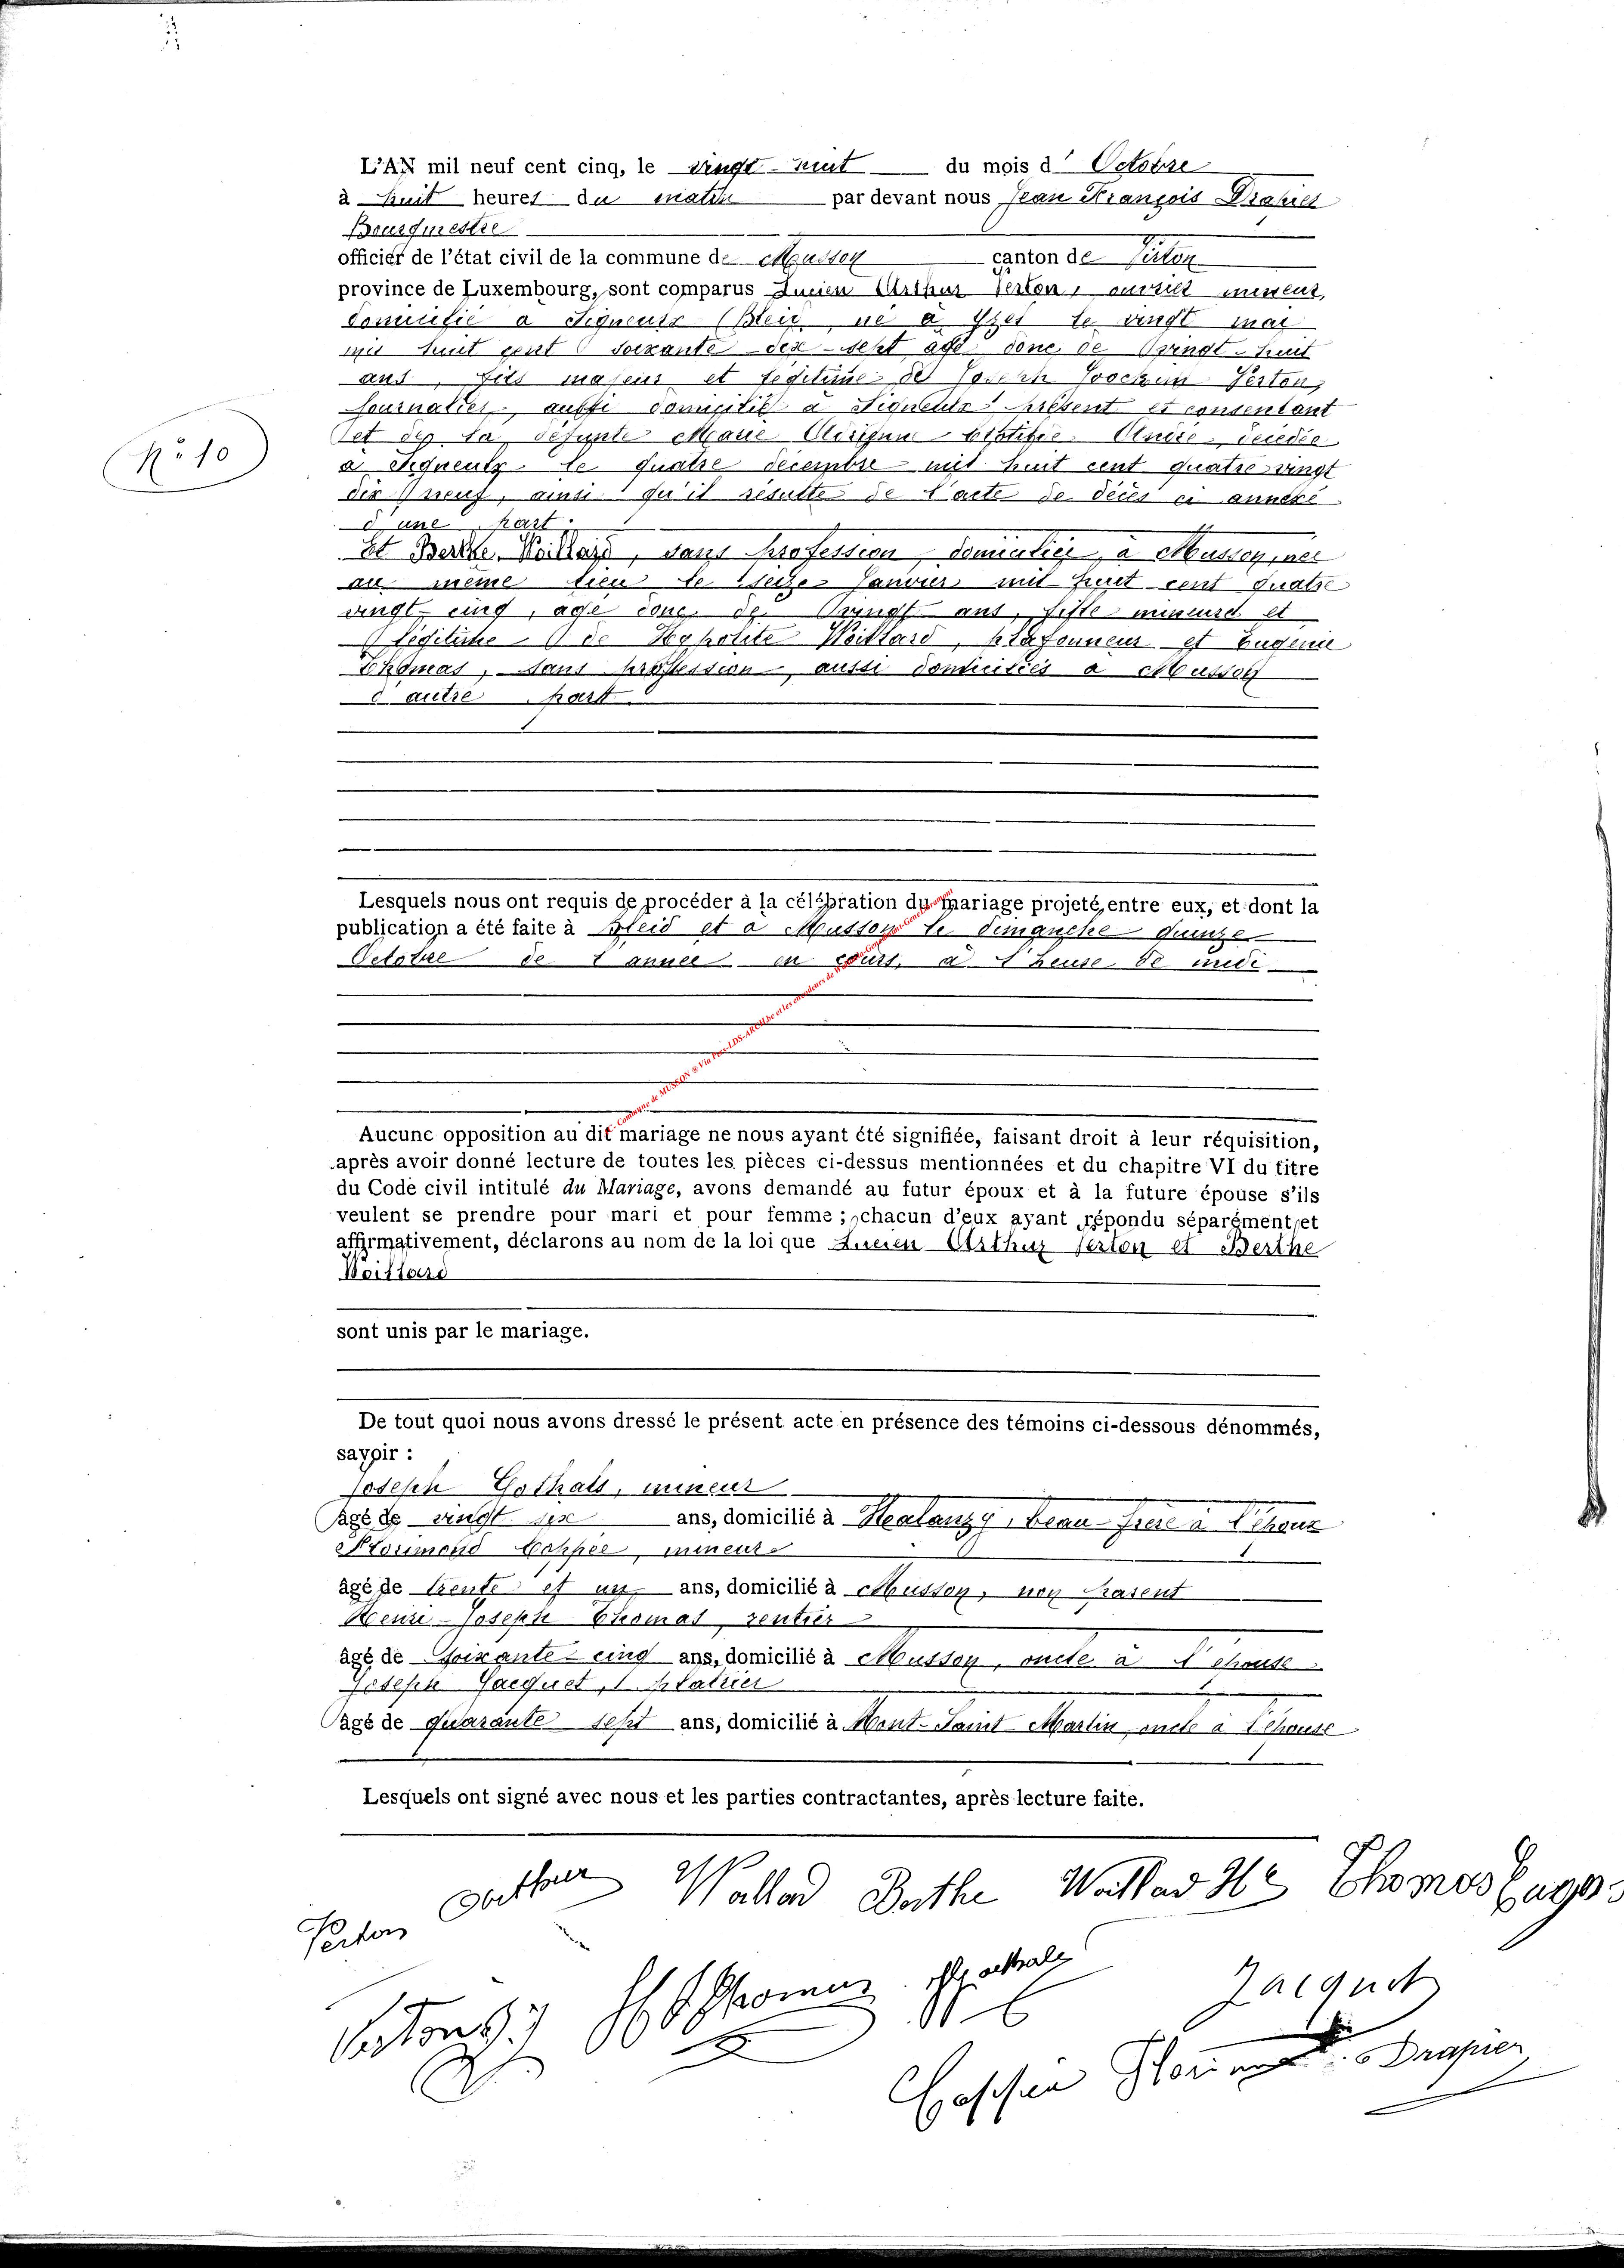 L'AN mil neuf cent cinq, le vingt-huit du mois d' Octobre
à huit heures du matin par devant nous Jean François Drapier
Bourgmestre
officier de l'état civil de la commune de Musson canton de Virton
province de Luxembourg, sont comparus Lucien Arthur Perton, ouvrier mineur,
domicilié à Signeulx (Bleid, né à le vingt mai
mil huit cent soixante-dix-sept âgé donc de vingt-huit
ans, fils majeur et légitime de Joseph Perton,
journalier, aussi domicilié à Signeulx présent et consentant
et de la défunte Marie André, décédée
à Signeulx le quatre décembre mil huit cent quatre vingt
dix neuf, ainsi qu'il résulte de l'acte de décès ci annexé
d'une part.
N° 10
Et Berthe Waillard, sans profession, domiciliée à Musson, née
au même lieu le seize Janvier mil huit cent quatre
vingt-cinq, âgé donc de vingt ans, fille mineure et
légitime de Hypolite Waillard, plafonneur et Eugénie
Thomas, sans profession, aussi domiciliés à Musson
d'autre part.
Lesquels nous ont requis de procéder à la célébration du mariage projeté entre eux, et dont la
publication a été faite à Bleid et à Musson le dimanche quinze
Octobre de l'année en cours, à l'heure de midi
Commune de MUSSON ® Via Pers-LDS-ARCH.be et les
Aucune opposition au dit mariage ne nous ayant été signifiée, faisant droit à leur réquisition,
après avoir donné lecture de toutes les pièces ci-dessus mentionnées et du chapitre VI du titre
du Code civil intitulé du Mariage, avons demandé au futur époux et à la future épouse s'ils
veulent se prendre pour mari et pour femme ; chacun d'eux ayant répondu séparément et
affirmativement, déclarons au nom de la loi que Lucien Arthur Perton et Berthe
Waillard
sont unis par le mariage.
De tout quoi nous avons dressé le présent acte en présence des témoins ci-dessous dénommés,
savoir :
Joseph Gothals, mineur
âgé de vingt six ans, domicilié à Halanzy, beau-frère à l'époux
Florimond Coppée, mineur
âgé de trente et un ans, domicilié à Musson, non parent
Henri-Joseph Thomas, rentier
âgé de soixante-cinq ans, domicilié à Musson, oncle à l'épouse
Joseph Jacquet, platrier
âgé de quarante sept ans, domicilié à Mont-Saint-Martin, oncle à l'épouse
Lesquels ont signé avec nous et les parties contractantes, après lecture faite.
Perton Arthur Wallard Berthe Waillard Hte Thomas Eugé
Perton J.J H J Thomas Goethals Jacquet
Coppée Florimond Drapier